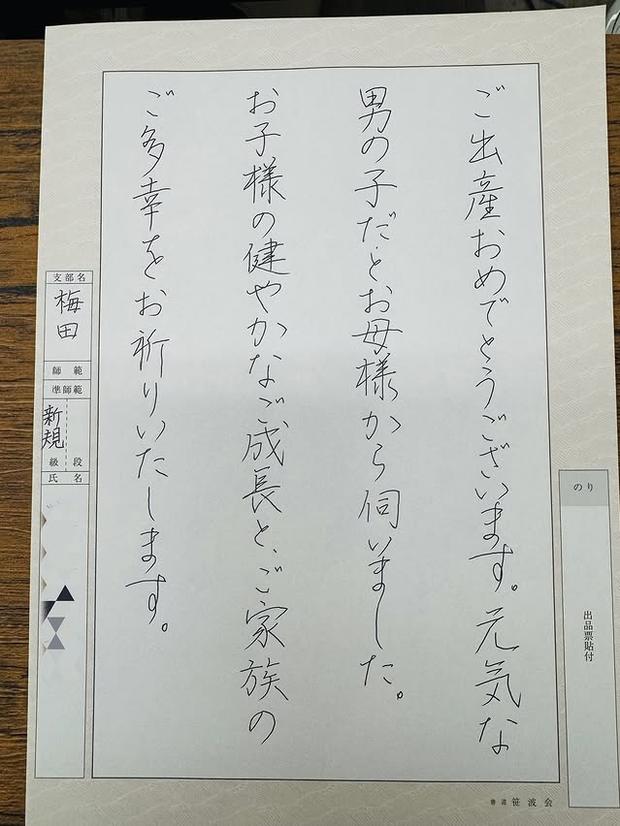 ご出産おめでとうございます。元気な
男の子だとお母様から伺いました。
お子様の健やかなご成長と、ご家族の
ご多幸をお祈りいたします。
支部名
梅田
師範
準師範
新規
級 段
氏名
のり
出品票貼付
書道 笹波会